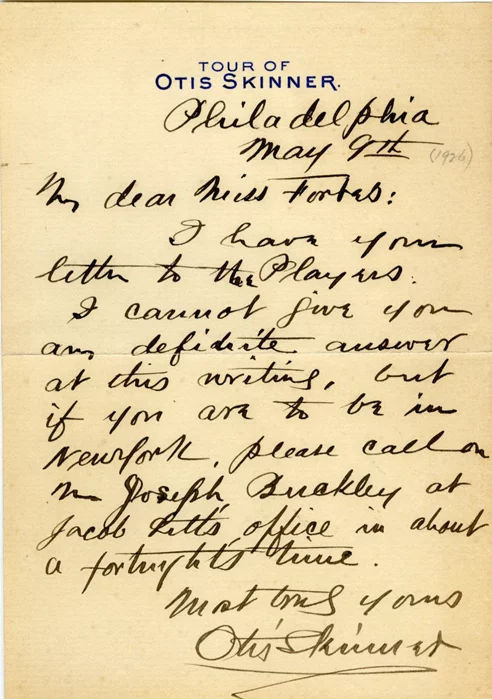 TOUR OF
OTIS SKINNER.
Philadelphia
May 9th (1926)
My dear Miss Forbes:
I have your
letter to the Players.
I cannot give you
any definite answer
at this writing, but
if you are to be in
New York, please call on
Mr Joseph Buckley at
Jacob Litt's office in about
a fortnight's time.
Most truly yours
Otis Skinner